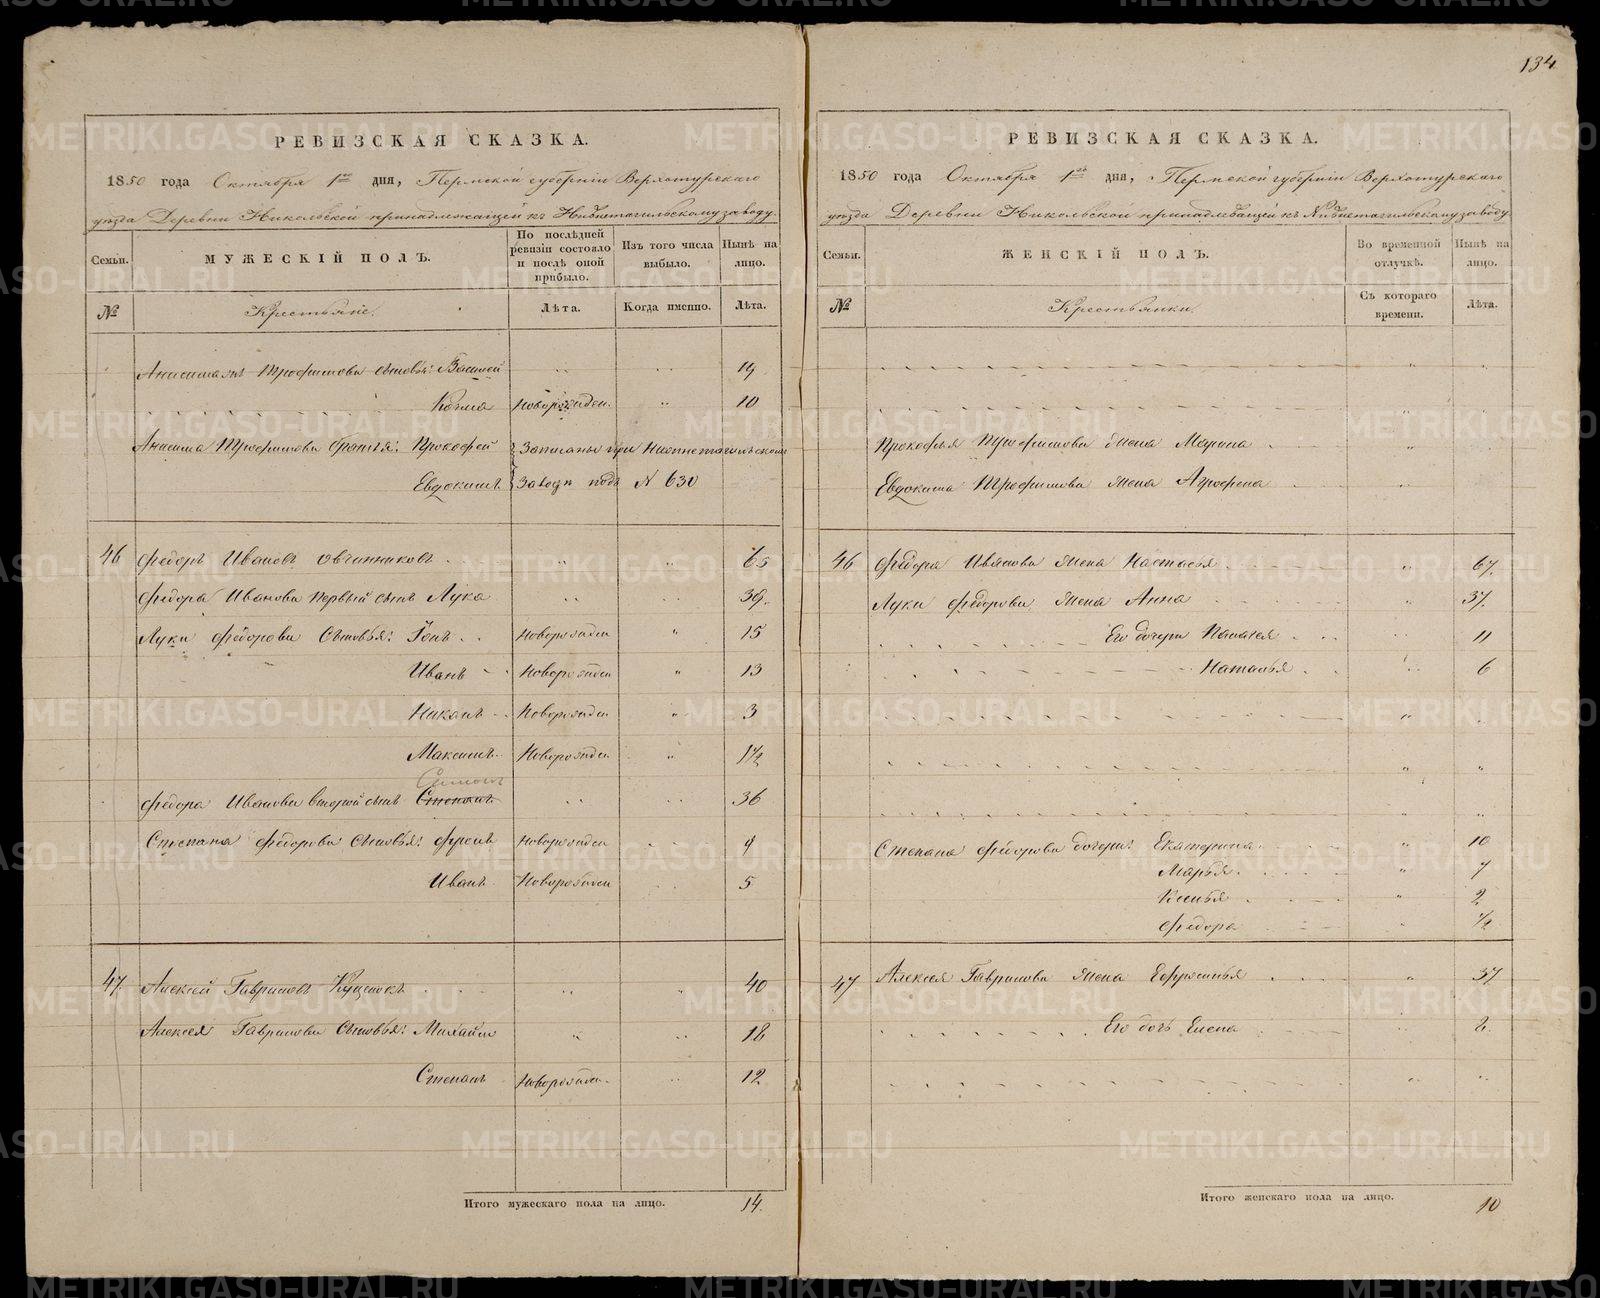 134
РЕВИЗСКАЯ СКАЗКА.
1850 года Октября 1го дня, Пермской губерніи Верхотурскаго
уѣзда Деревни Никольской принадлежащей къ Нижнетагильскому заводу.
Семьи. МУЖЕСКІЙ ПОЛЪ. По послѣдней ревизіи состояло и послѣ оной прибыло. Изъ того числа выбыло. Нынѣ на лицо.
№ Крестьяне. Лѣта. Когда именно. Лѣта.
Трофимова сыновья: Василей 19
Козма Новорожден. 10
Трофимова братья: Прокофей Записаны при Нижнетагильскомъ
Евдокимъ Заводѣ подъ № 630
46 Федоръ Ивановъ Овчинниковъ 65
Федора Иванова первый сынъ Лука 39.
Луки Федорова Сыновья: Новорожден 15
Иванъ Новорожден 13
Новорожден 3
Максимъ Новорожден 1 1/2
Симонъ
Федора Иванова второй сынъ Степанъ 36
Степана Федорова Сыновья: Новорожден
Иванъ Новорожден 5
47. Алексей Гавриловъ 40
Алексея Гаврилова Сыновья: Михайло 18
Степанъ Новорожден. 12
Итого мужескаго пола на лицо. 14.
РЕВИЗСКАЯ СКАЗКА.
1850 года Октября 1го дня, Пермской губерніи Верхотурскаго
уѣзда Деревни Никольской принадлежащей къ Нижнетагильскому заводу
Семьи. ЖЕНСКІЙ ПОЛЪ. Во временной отлучкѣ. Нынѣ на лицо.
№ Крестьянки. Съ котораго времени. Лѣта.
Прокофья Трофимова жена Марина
Евдокима Трофимова жена Агрофена
46 Федора Иванова жена Настасья 67.
Луки Федорова жена Анна 37.
Его дочери Палагея 11
Наталья 6
Степана Федорова дочери: Екатерина 10
Марья 7
Ксенья 2
Федора 1/2
47 Алексея Гаврилова жена Ефросинья 37
Его дочь Елена 2.
Итого женскаго пола на лицо. 10
METRIKI.GASO-URAL.RU